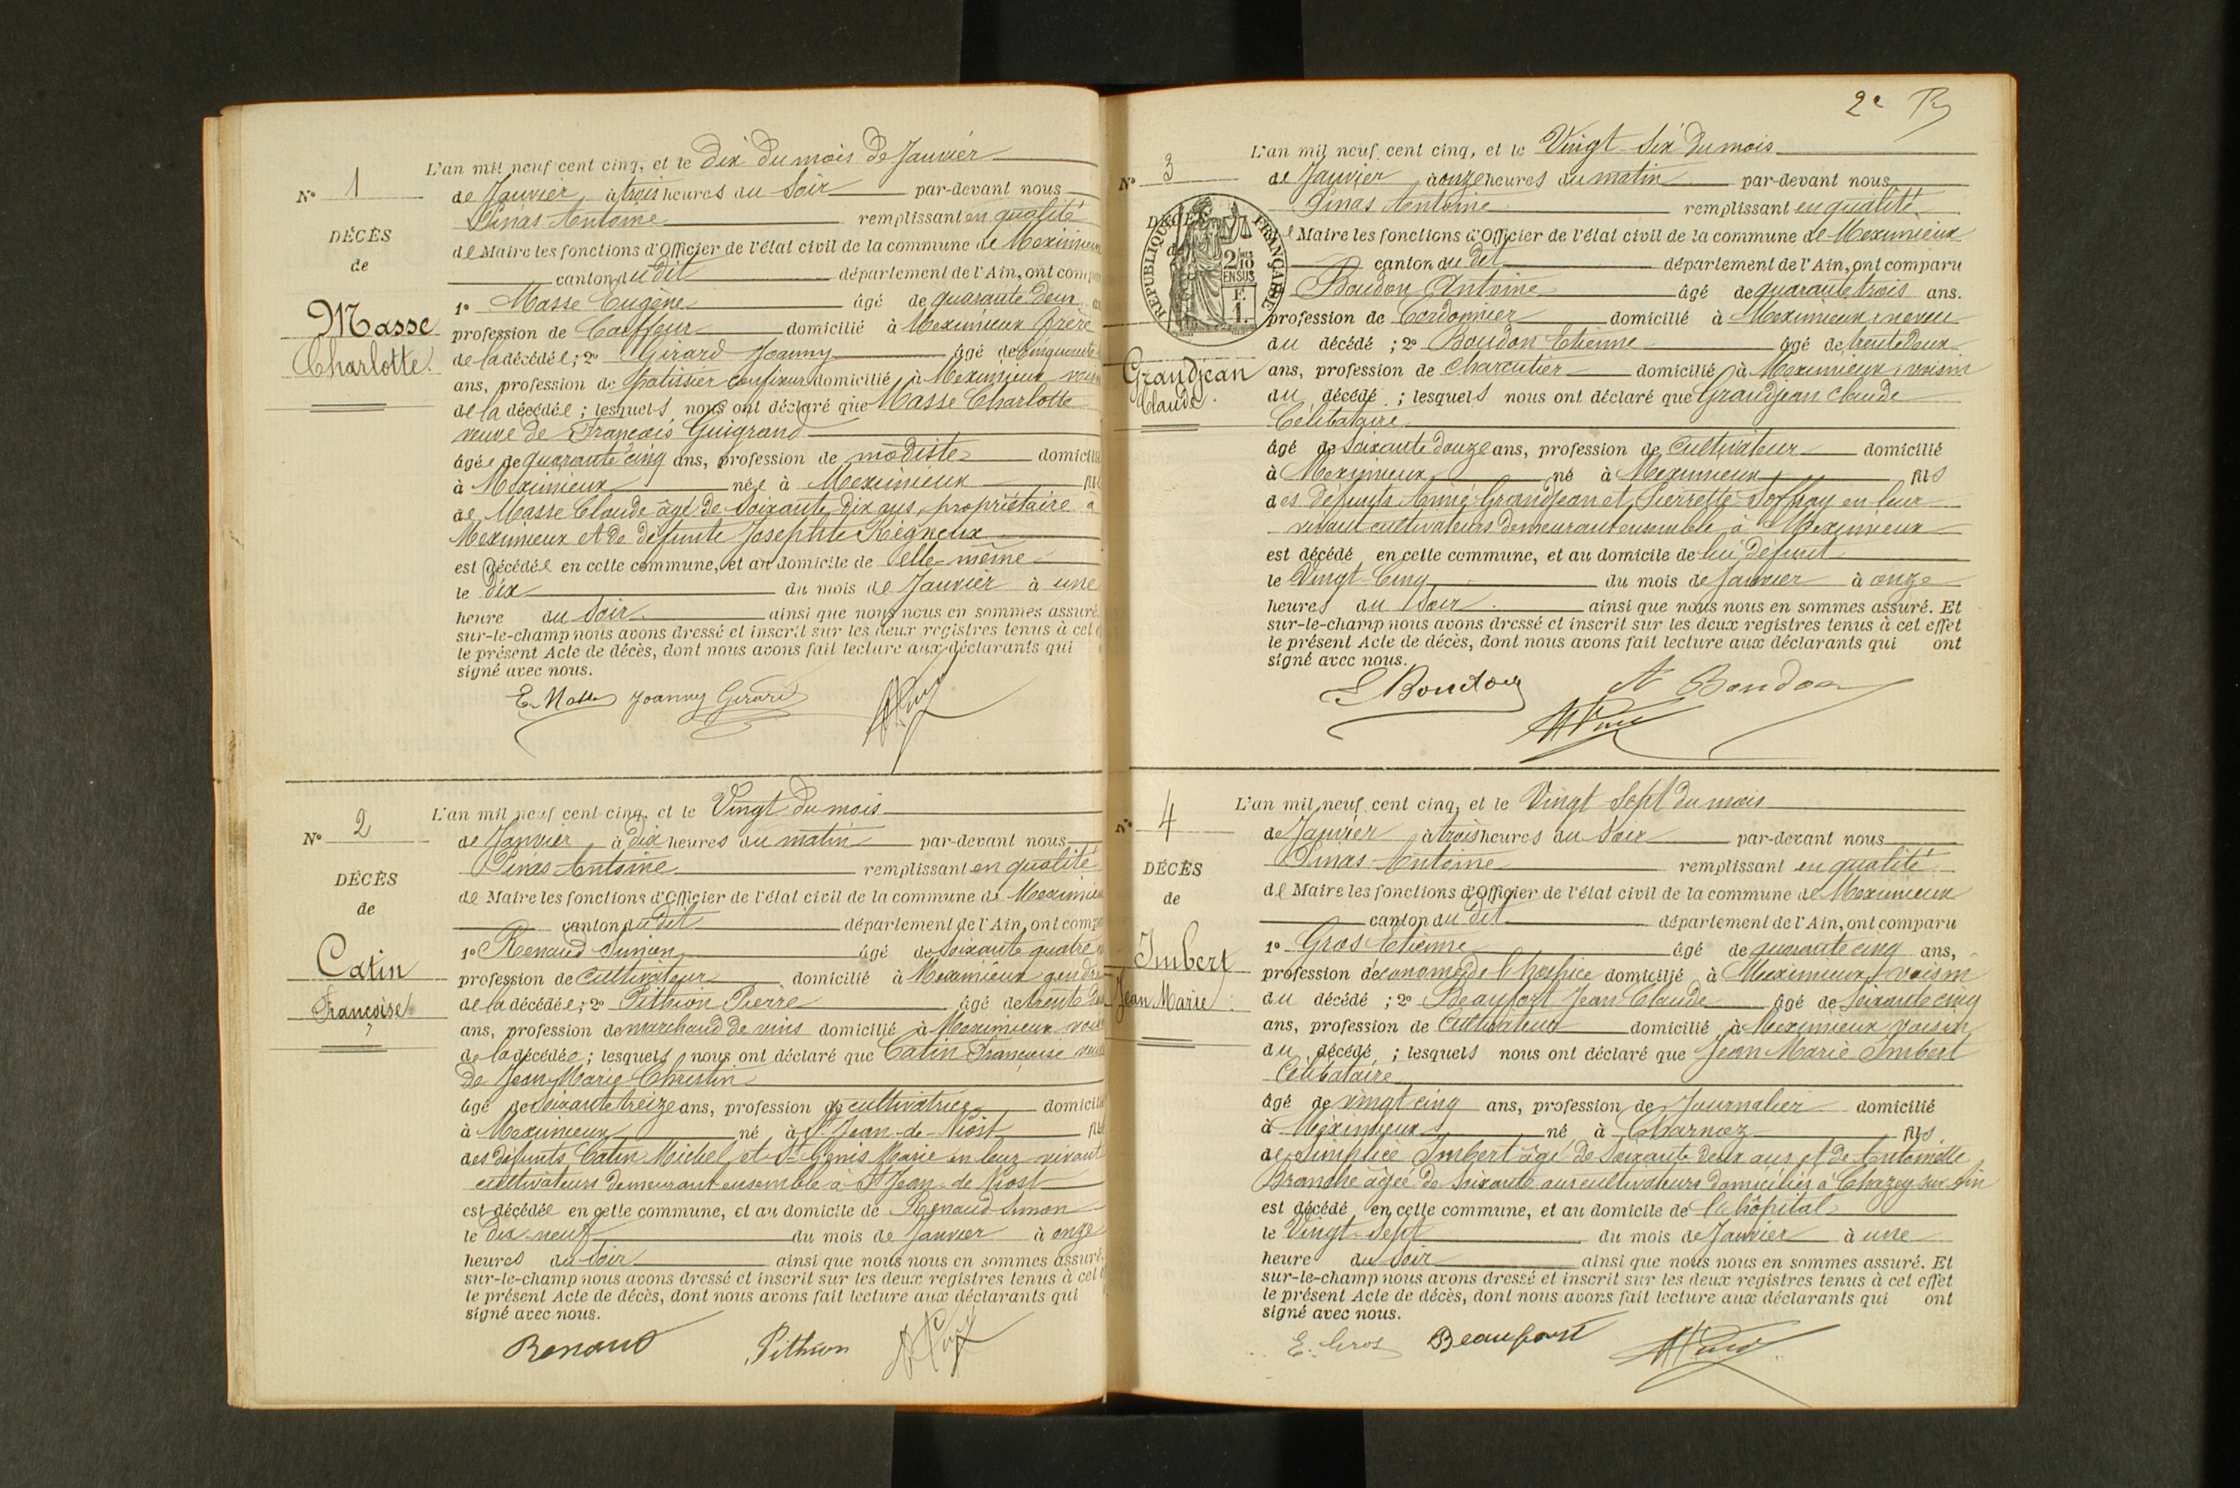 N° 1
DÉCÈS
de
Masse
Charlotte.
L'an mil neuf cent cinq, et le Dix du mois de Janvier
de Janvier à trois heures du Soir par-devant nous
Pinas Antoine remplissant en qualité
de Maire les fonctions d'Officier de l'état civil de la commune de Meximieux
canton du dit département de l'Ain, ont comparu
1° Masse Eugène âgé de quarante deux
profession de Coiffeur domicilié à Meximieux frère
de la décédée; 2° Girard Joanny âgé de Cinquante
ans, profession de Patissier confiseur domicilié à Meximieux voisin
de la décédée; lesquels nous ont déclaré que Masse Charlotte
veuve de François Guigrand
âgée de quarante cinq ans, profession de modiste domicilié
à Meximieux née à Meximieux fille
de Masse Claude âgé de soixante dix ans, propriétaire à
Meximieux et de défunte Josephte Reigneux
est décédée en cette commune, et au domicile de elle-même
le dix du mois de Janvier à une
heure du Soir ainsi que nous nous en sommes assuré.
sur-le-champ nous avons dressé et inscrit sur les deux registres tenus à cet
le présent Acte de décès, dont nous avons fait lecture aux déclarants qui
signé avec nous.
E. Masse Joanny Girard
N° 2
DÉCÈS
de
Catin
Françoise
L'an mil neuf cent cinq, et le Vingt du mois
de Janvier à dix heures du matin par-devant nous
Pinas Antoine remplissant en qualité
de Maire les fonctions d'Officier de l'état civil de la commune de Meximieux
canton du dit département de l'Ain, ont comparu
1° Renaud Simon âgé de soixante quatre
profession de cultivateur domicilié à Meximieux gendre
de la décédée; 2° Pithion Pierre âgé de trente
ans, profession de marchand de vins domicilié à Meximieux voisin
de la décédée; lesquels nous ont déclaré que Catin Françoise veuve
de Jean Marie Christin
âgé de soixante treize ans, profession de cultivatrice domicilié
à Meximieux né à St Jean-de-Niost fille
des défunts Catin Michel et St Genis Marie en leur vivant
cultivateurs demeurant ensemble à St Jean-de-Niost
est décédée en cette commune, et au domicile de Renaud Simon
le dix-neuf du mois de Janvier à onze
heures du soir ainsi que nous nous en sommes assuré.
sur-le-champ nous avons dressé et inscrit sur les deux registres tenus à cet
le présent Acte de décès, dont nous avons fait lecture aux déclarants qui
signé avec nous.
Renaud Pithion
2e
N° 3
DÉCÈS
de
RÉPUBLIQUE FRANÇAISE
2/10
EN SUS
F.
1.
Grandjean
Claude.
L'an mil neuf cent cinq, et le Vingt Six du mois
de Janvier à onze heures du matin par-devant nous
Pinas Antoine remplissant en qualité
de Maire les fonctions d'Officier de l'état civil de la commune de Meximieux
canton du dit département de l'Ain, ont comparu
Boudon Antoine âgé de quarante trois ans.
profession de Cordonnier domicilié à Meximieux, neveu
du décédé; 2° Boudon Etienne âgé de trente deux
ans, profession de Charcutier domicilié à Meximieux, voisin
du décédé; lesquels nous ont déclaré que Grandjean Claude
Célibataire
âgé de soixante douze ans, profession de Cultivateur domicilié
à Meximieux né à Meximieux fils
des défunts Aimé Grandjean et Pierrette Joffray en leur
vivant cultivateurs demeurant ensemble à Meximieux
est décédé en cette commune, et au domicile de lui défunt
le Vingt-Cinq du mois de Janvier à onze
heures du Soir ainsi que nous nous en sommes assuré. Et
sur-le-champ nous avons dressé et inscrit sur les deux registres tenus à cet effet
le présent Acte de décès, dont nous avons fait lecture aux déclarants qui ont
signé avec nous.
E Boudon A Boudon
N° 4
DÉCÈS
de
Imbert
Jean Marie.
L'an mil neuf cent cinq, et le Vingt Sept du mois
de Janvier à trois heures du Soir par-devant nous
Pinas Antoine remplissant en qualité
de Maire les fonctions d'Officier de l'état civil de la commune de Meximieux
canton du dit département de l'Ain, ont comparu
1° Gros Etienne âgé de quarante cinq ans,
profession d'économe de l'hospice domicilié à Meximieux, voisin
du décédé; 2° Beaufort Jean Claude âgé de Soixante cinq
ans, profession de Cultivateur domicilié à Meximieux voisin
du décédé; lesquels nous ont déclaré que Jean Marie Imbert
Célibataire
âgé de vingt cinq ans, profession de Journalier domicilié
à Meximieux né à Charnoz fils
de Simplice Imbert âgé de Soixante deux ans et de Antoinette
Branche âgée de Soixante ans cultivateurs domiciliés à Chazey sur Ain
est décédé en cette commune, et au domicile de l'hôpital
le Vingt-Sept du mois de Janvier à une
heure du Soir ainsi que nous nous en sommes assuré. Et
sur-le-champ nous avons dressé et inscrit sur les deux registres tenus à cet effet
le présent Acte de décès, dont nous avons fait lecture aux déclarants qui ont
signé avec nous.
E. Gros Beaufort